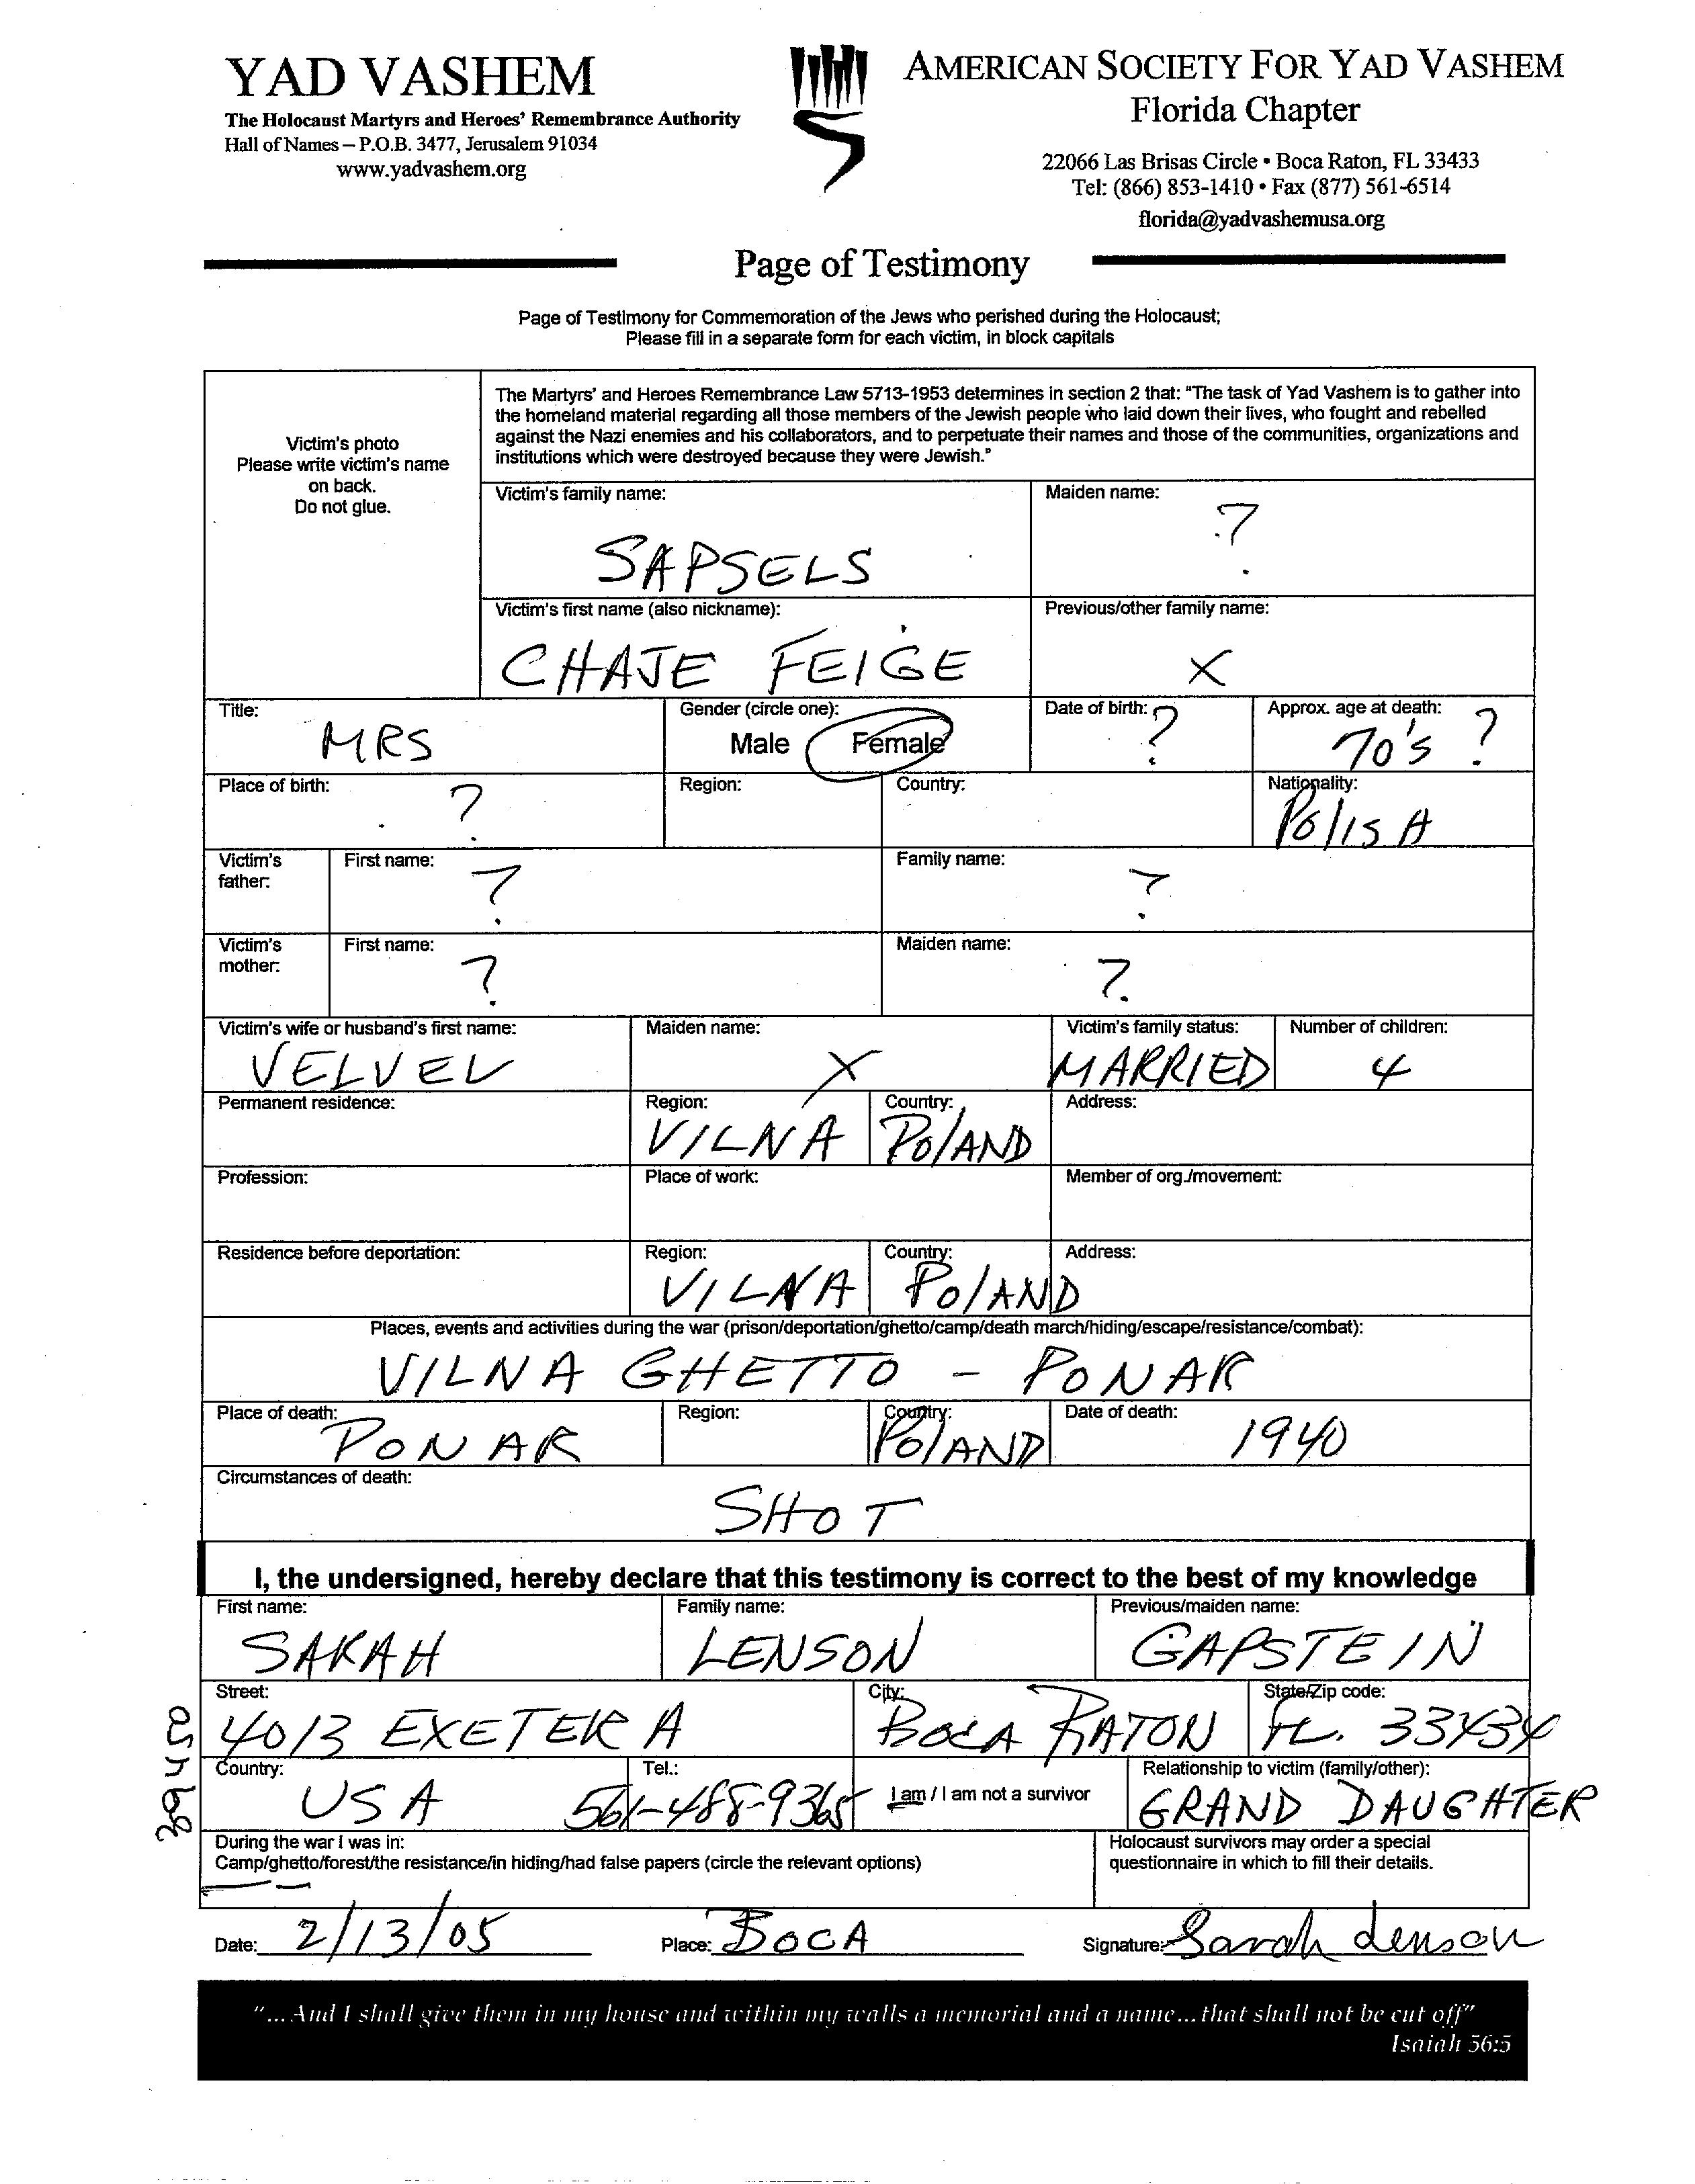 YAD VASHEM
The Holocaust Martyrs and Heroes' Remembrance Authority
Hall of Names – P.O.B. 3477, Jerusalem 91034
www.yadvashem.org
AMERICAN SOCIETY FOR YAD VASHEM
Florida Chapter
22066 Las Brisas Circle • Boca Raton, FL 33433
Tel: (866) 853-1410 • Fax (877) 561-6514
florida@yadvashemusa.org
Page of Testimony
Page of Testimony for Commemoration of the Jews who perished during the Holocaust;
Please fill in a separate form for each victim, in block capitals
Victim's photo
Please write victim's name
on back.
Do not glue.
The Martyrs' and Heroes Remembrance Law 5713-1953 determines in section 2 that: "The task of Yad Vashem is to gather into
the homeland material regarding all those members of the Jewish people who laid down their lives, who fought and rebelled
against the Nazi enemies and his collaborators, and to perpetuate their names and those of the communities, organizations and
institutions which were destroyed because they were Jewish."
Victim's family name: Maiden name:
SAPSELS ?
Victim's first name (also nickname): Previous/other family name:
CHAJE FEIGE X
Title: Gender (circle one): Date of birth: Approx. age at death:
MRS Male Female ? 70's ?
Place of birth: Region: Country: Nationality:
? PolisH
Victim's father: First name: ? Family name: ?
Victim's mother: First name: ? Maiden name: ?
Victim's wife or husband's first name: Maiden name: Victim's family status: Number of children:
VELVEL X MARRIED 4
Permanent residence: Region: Country: Address:
VILNA PolAND
Profession: Place of work: Member of org./movement:
Residence before deportation: Region: Country: Address:
VILNA PolAND
Places, events and activities during the war (prison/deportation/ghetto/camp/death march/hiding/escape/resistance/combat):
VILNA GHETTO – PONAR
Place of death: Region: Country: Date of death:
PONAR PolAND 1940
Circumstances of death:
SHOT
I, the undersigned, hereby declare that this testimony is correct to the best of my knowledge
First name: Family name: Previous/maiden name:
SARAH LENSON GAPSTEIN
Street: City: State/Zip code:
4013 EXETER A BOCA RATON FL. 33434
Country: Tel.: I am / I am not a survivor Relationship to victim (family/other):
USA 561-488-9365 GRAND DAUGHTER
During the war I was in:
Camp/ghetto/forest/the resistance/in hiding/had false papers (circle the relevant options)
Holocaust survivors may order a special
questionnaire in which to fill their details.
Date: 2/13/05 Place: BOCA Signature: Sarah Lenson
"...And I shall give them in my house and within my walls a memorial and a name...that shall not be cut off"
Isaiah 56:5